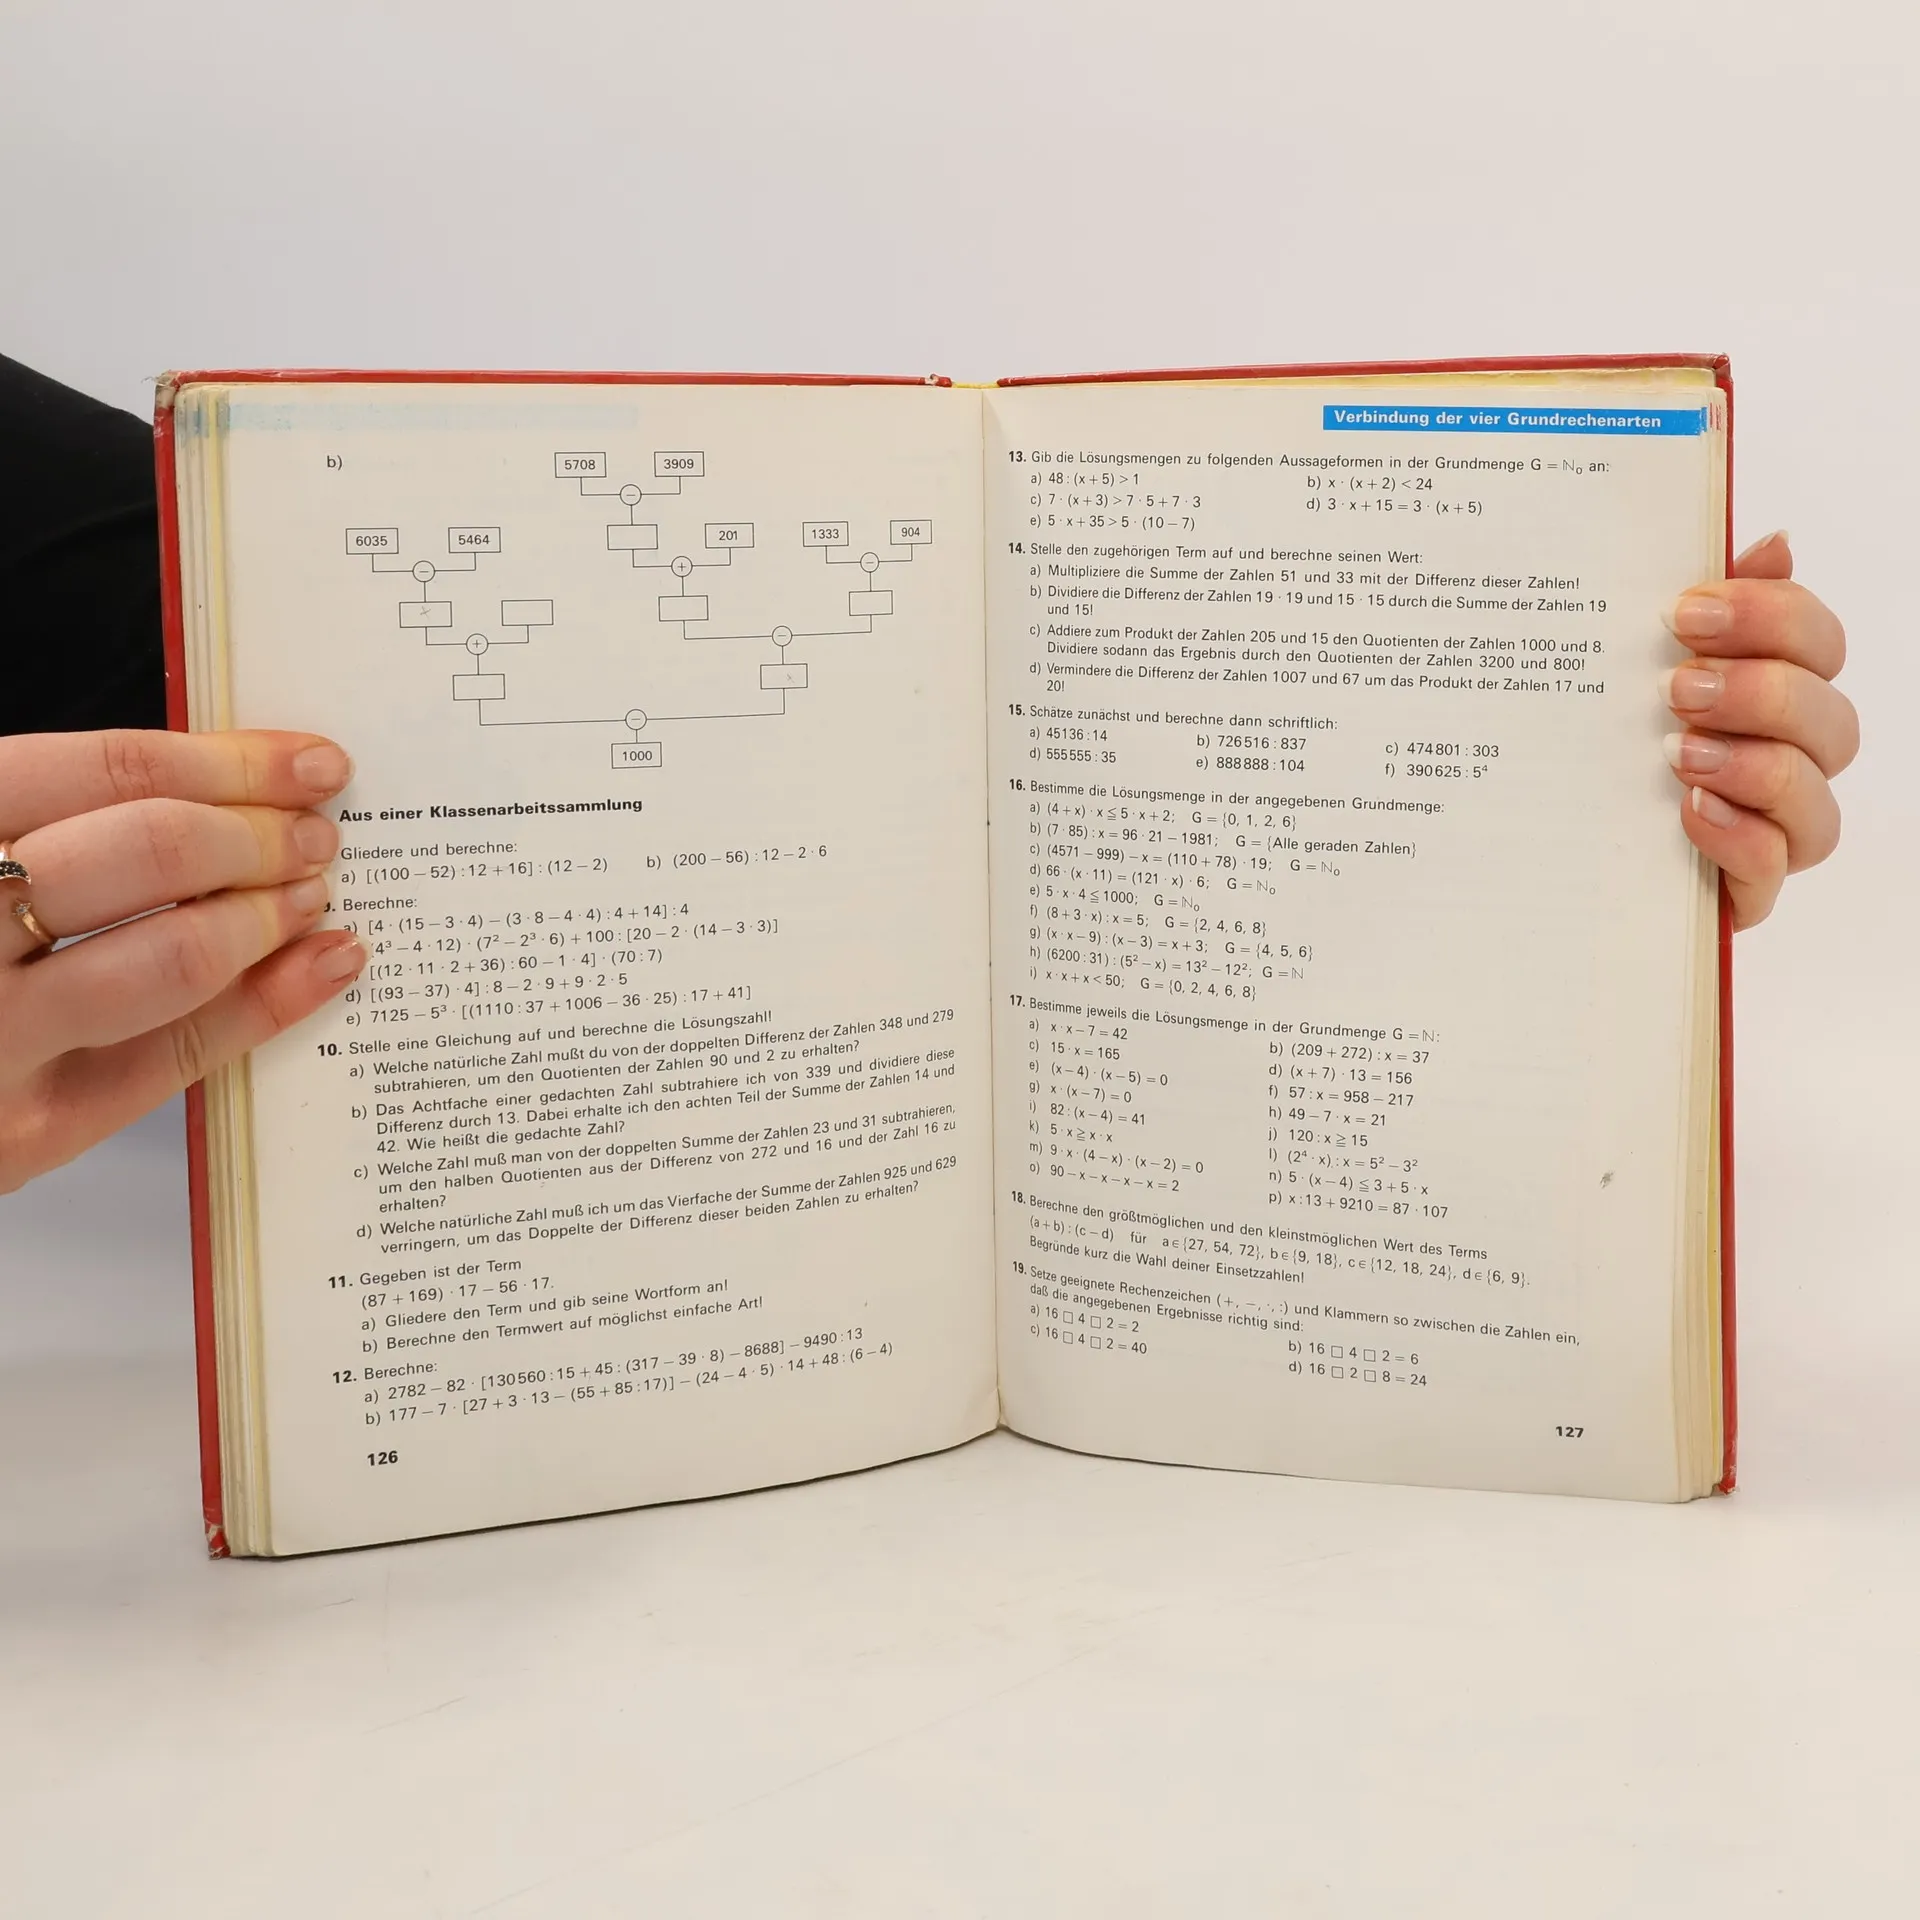 b)
5708 3909
−
6035 5464 201 1333 904
− + −
+ −
−
1000
Aus einer Klassenarbeitssammlung
Gliedere und berechne:
a) [(100 − 52) : 12 + 16] : (12 − 2) b) (200 − 56) : 12 − 2 · 6
9. Berechne:
a) [4 · (15 − 3 · 4) − (3 · 8 − 4 · 4) : 4 + 14] : 4
4³ − 4 · 12) · (7² − 2³ · 6) + 100 : [20 − 2 · (14 − 3 · 3)]
[(12 · 11 · 2 + 36) : 60 − 1 · 4] · (70 : 7)
d) [(93 − 37) · 4] : 8 − 2 · 9 + 9 · 2 · 5
e) 7125 − 5³ · [(1110 : 37 + 1006 − 36 · 25) : 17 + 41]
10. Stelle eine Gleichung auf und berechne die Lösungszahl!
a) Welche natürliche Zahl mußt du von der doppelten Differenz der Zahlen 348 und 279
subtrahieren, um den Quotienten der Zahlen 90 und 2 zu erhalten?
b) Das Achtfache einer gedachten Zahl subtrahiere ich von 339 und dividiere diese
Differenz durch 13. Dabei erhalte ich den achten Teil der Summe der Zahlen 14 und
42. Wie heißt die gedachte Zahl?
c) Welche Zahl muß man von der doppelten Summe der Zahlen 23 und 31 subtrahieren,
um den halben Quotienten aus der Differenz von 272 und 16 und der Zahl 16 zu
erhalten?
d) Welche natürliche Zahl muß ich um das Vierfache der Summe der Zahlen 925 und 629
verringern, um das Doppelte der Differenz dieser beiden Zahlen zu erhalten?
11. Gegeben ist der Term
(87 + 169) · 17 − 56 · 17.
a) Gliedere den Term und gib seine Wortform an!
b) Berechne den Termwert auf möglichst einfache Art!
12. Berechne:
a) 2782 − 82 · [130560 : 15 + 45 : (317 − 39 · 8) − 8688] − 9490 : 13
b) 177 − 7 · [27 + 3 · 13 − (55 + 85 : 17)] − (24 − 4 · 5) · 14 + 48 : (6 − 4)
126
Verbindung der vier Grundrechenarten
13. Gib die Lösungsmengen zu folgenden Aussageformen in der Grundmenge G = ℕ₀ an:
a) 48 : (x + 5) > 1 b) x · (x + 2) < 24
c) 7 · (x + 3) > 7 · 5 + 7 · 3 d) 3 · x + 15 = 3 · (x + 5)
e) 5 · x + 35 > 5 · (10 − 7)
14. Stelle den zugehörigen Term auf und berechne seinen Wert:
a) Multipliziere die Summe der Zahlen 51 und 33 mit der Differenz dieser Zahlen!
b) Dividiere die Differenz der Zahlen 19 · 19 und 15 · 15 durch die Summe der Zahlen 19
und 15!
c) Addiere zum Produkt der Zahlen 205 und 15 den Quotienten der Zahlen 1000 und 8.
Dividiere sodann das Ergebnis durch den Quotienten der Zahlen 3200 und 800!
d) Vermindere die Differenz der Zahlen 1007 und 67 um das Produkt der Zahlen 17 und
20!
15. Schätze zunächst und berechne dann schriftlich:
a) 45136 : 14 b) 726516 : 837 c) 474801 : 303
d) 555555 : 35 e) 888888 : 104 f) 390625 : 5⁴
16. Bestimme die Lösungsmenge in der angegebenen Grundmenge:
a) (4 + x) · x ≦ 5 · x + 2; G = {0, 1, 2, 6}
b) (7 · 85) : x = 96 · 21 − 1981; G = {Alle geraden Zahlen}
c) (4571 − 999) − x = (110 + 78) · 19; G = ℕ₀
d) 66 · (x · 11) = (121 · x) · 6; G = ℕ₀
e) 5 · x · 4 ≦ 1000; G = ℕ₀
f) (8 + 3 · x) : x = 5; G = {2, 4, 6, 8}
g) (x · x − 9) : (x − 3) = x + 3; G = {4, 5, 6}
h) (6200 : 31) : (5² − x) = 13² − 12²; G = ℕ
i) x · x + x < 50; G = {0, 2, 4, 6, 8}
17. Bestimme jeweils die Lösungsmenge in der Grundmenge G = ℕ:
a) x · x − 7 = 42 b) (209 + 272) : x = 37
c) 15 · x = 165 d) (x + 7) · 13 = 156
e) (x − 4) · (x − 5) = 0 f) 57 : x = 958 − 217
g) x · (x − 7) = 0 h) 49 − 7 · x = 21
i) 82 : (x − 4) = 41 j) 120 : x ≧ 15
k) 5 · x ≧ x · x l) (2⁴ · x) : x = 5² − 3²
m) 9 · x · (4 − x) · (x − 2) = 0 n) 5 · (x − 4) ≦ 3 + 5 · x
o) 90 − x − x − x − x = 2 p) x : 13 + 9210 = 87 · 107
18. Berechne den größtmöglichen und den kleinstmöglichen Wert des Terms
(a + b) : (c − d) für a ∈ {27, 54, 72}, b ∈ {9, 18}, c ∈ {12, 18, 24}, d ∈ {6, 9}.
Begründe kurz die Wahl deiner Einsetzzahlen!
19. Setze geeignete Rechenzeichen (+, −, ·, :) und Klammern so zwischen die Zahlen ein,
daß die angegebenen Ergebnisse richtig sind:
a) 16 □ 4 □ 2 = 2 b) 16 □ 4 □ 2 = 6
c) 16 □ 4 □ 2 = 40 d) 16 □ 2 □ 8 = 24
127